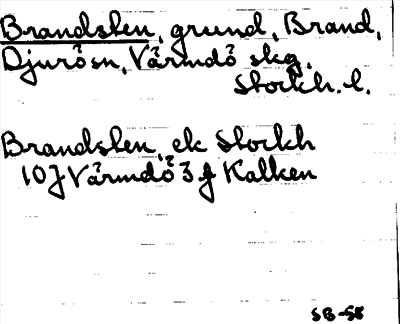 Brandsten, grund, Brand,
Djurösn, Värmdö skg,
Stockh. l.
Brandsten, ek Stockh
10J Värmdö 3f Kalken
SB-58